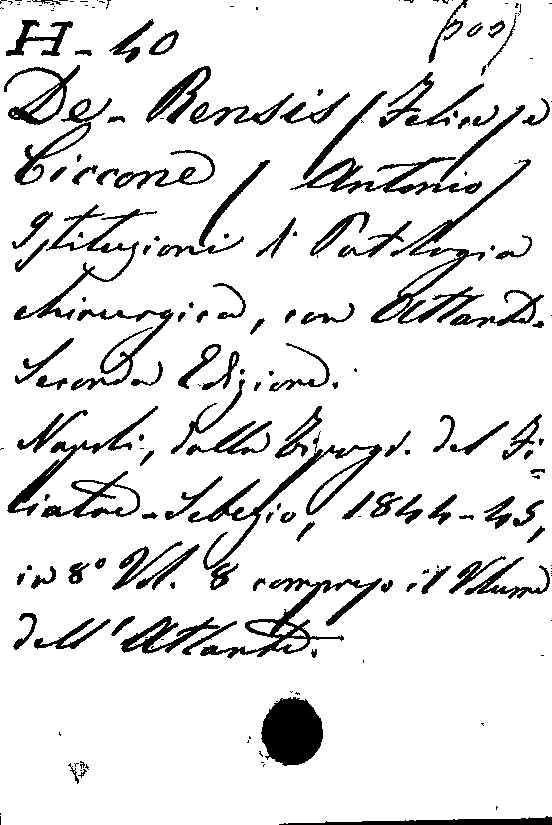 H-40 (200)
De-Rensis (Felice) e
Ciccone (Antonio)
Istituzioni di Patologia
chirurgica, con Atlante.
Seconda Edizione.
Napoli, dalla Tipogr. del Fi=
liatre-Sebezio, 1844-45,
in 8° Vol. 8 compreso il Volume
dell'Atlante.